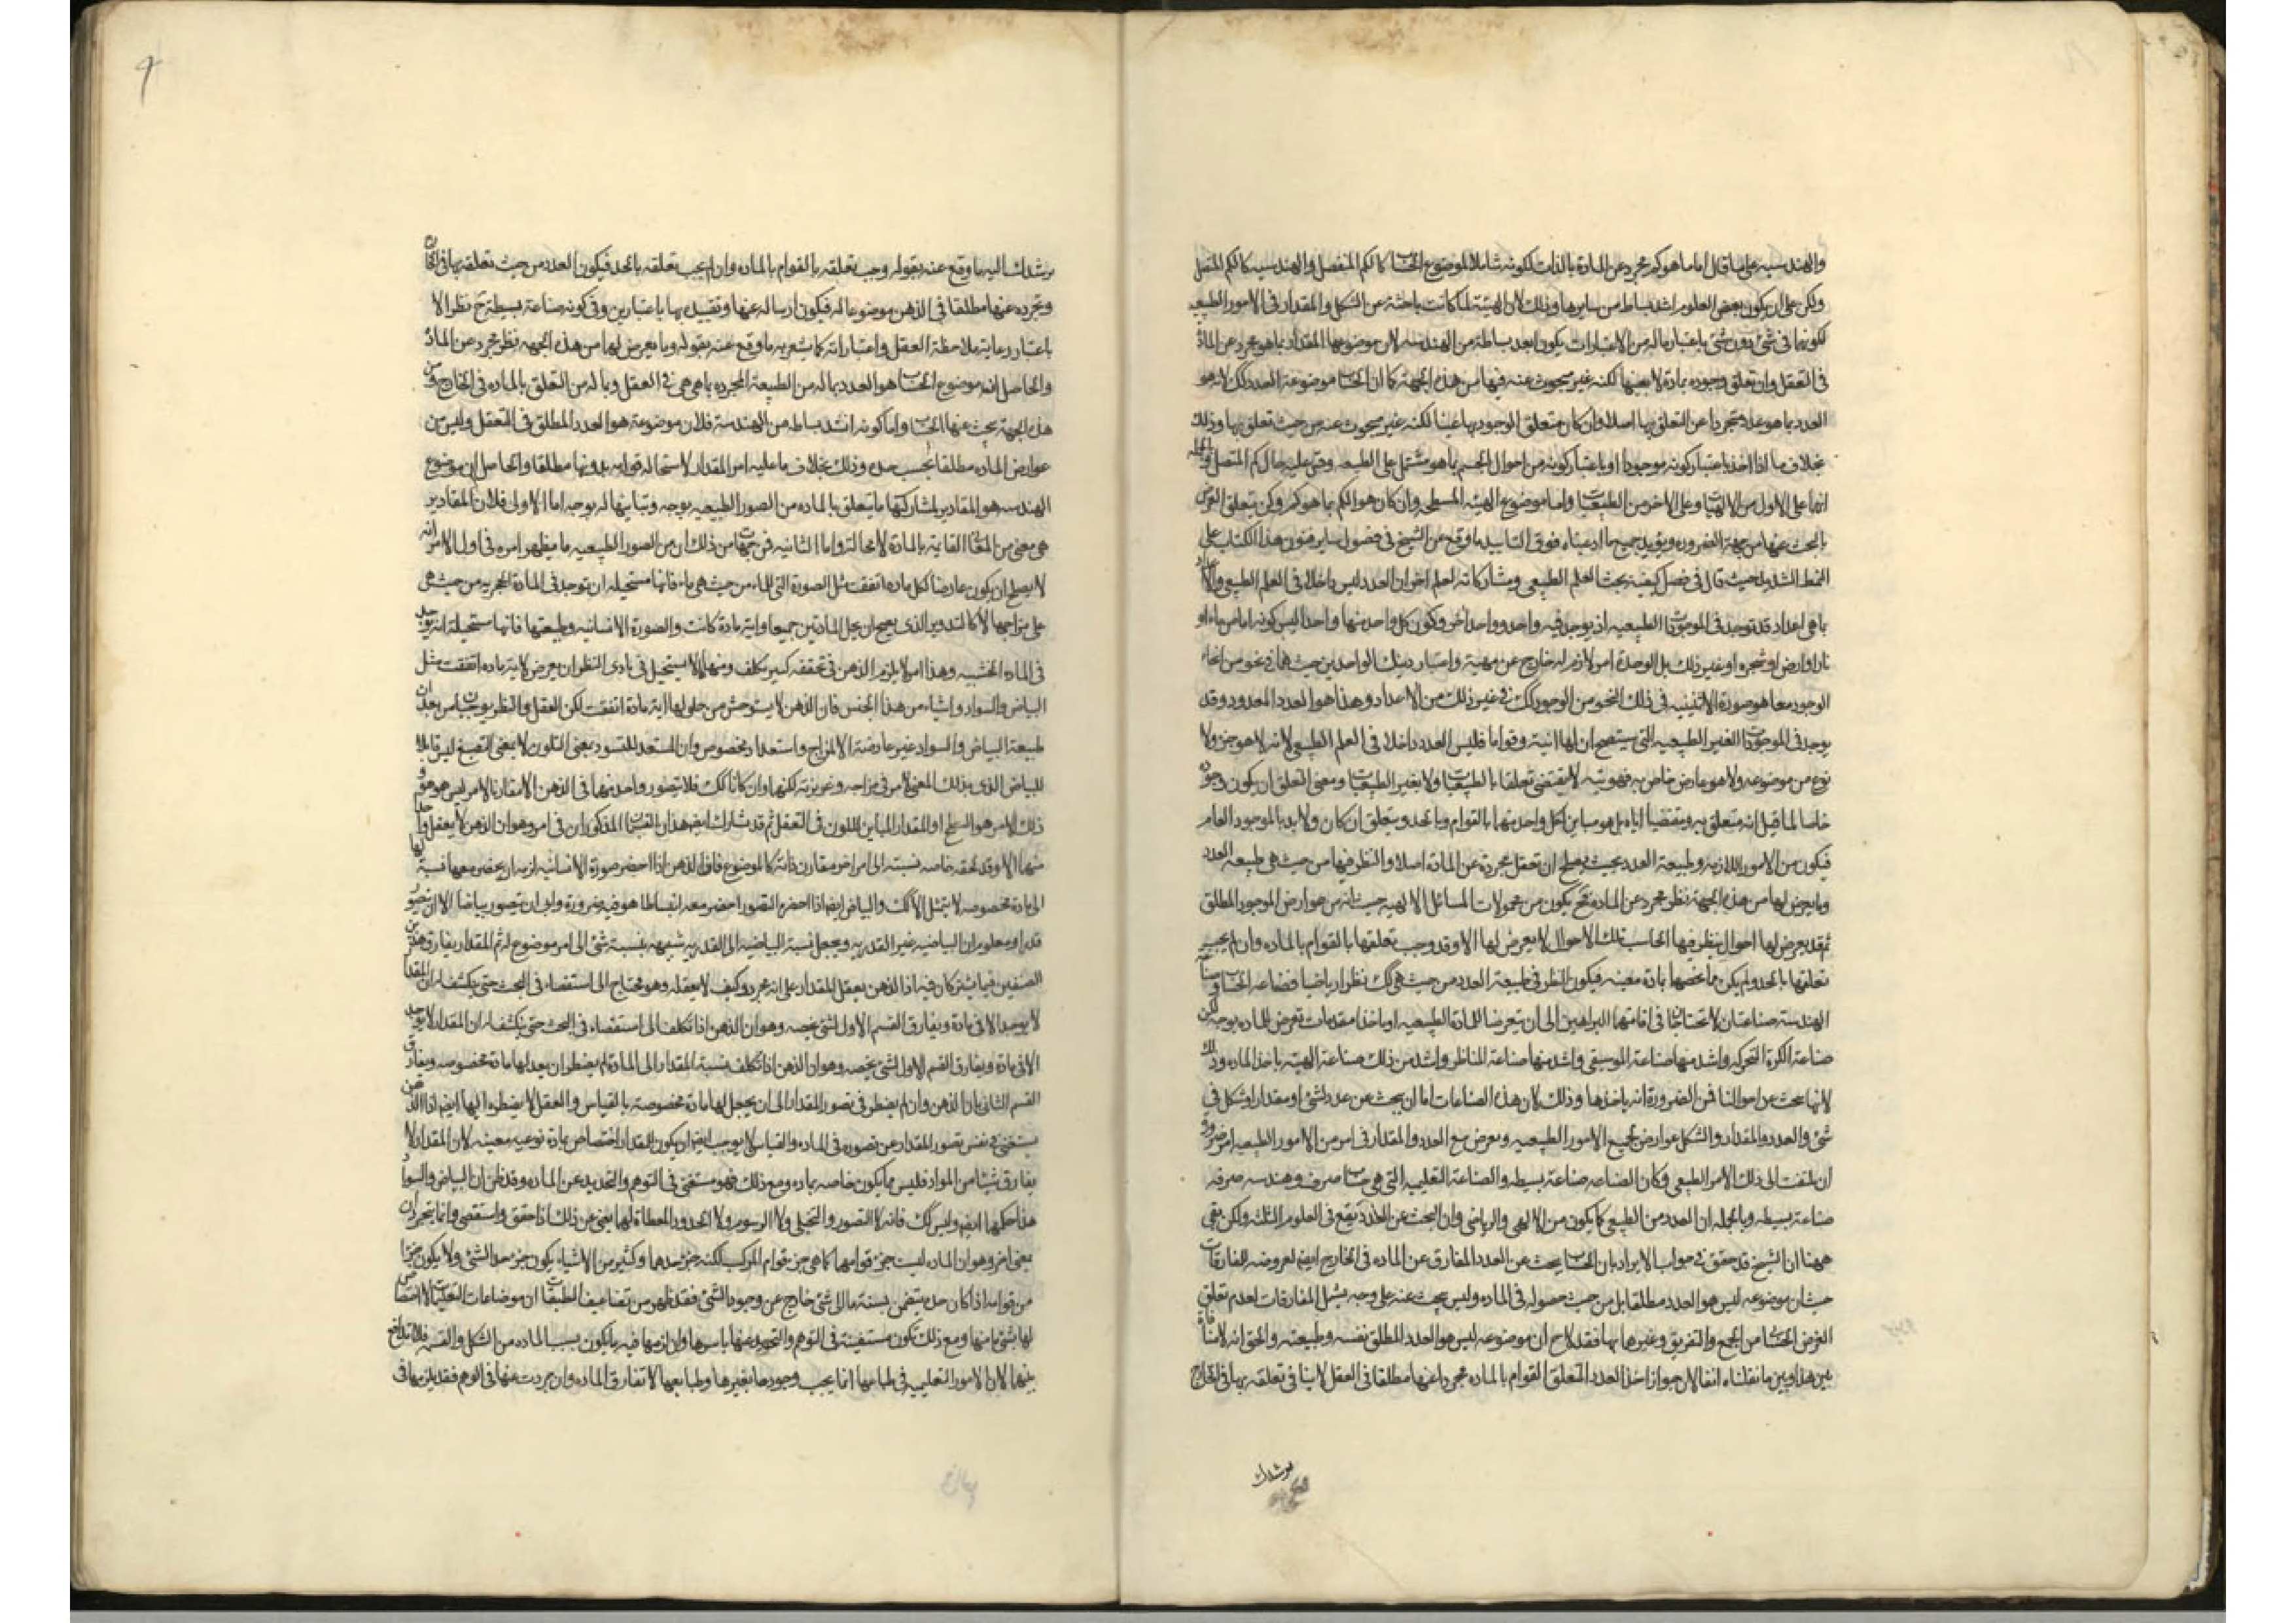 والهندسيه على ما قال اما ما هو كم مجرد عن المادة بالذات لكونه شاملا لموضوع الحساب كالكم المنفصل والهندسيه كالكم المتصل
ولكن على ان يكون بعض العلوم اشد بساط من سايرها وذلك لان الهيئة لما كانت باحثة عن الشكل والمقدار فى الامور الطبيعيه
لكونها فى شئ دون شئ باعتبار ماله من الاعتبارات يكون ابعد بساطة من الهندسه لان موضوعها المقدار بما هو مجرد عن المادة
فى التعقل وان تعلق وجوده بمادة لا بعينها لكنه غير مبحوث عنه فيها من هذه الجهة كما ان الحساب موضوعة العدد كك لانه هو
العدد بما هو عدد متجردا عن التعلق بها اصلا وان كان متعلق الوجود بها عينا لكنه غير مبحوث عنه من حيث تعلق بها وذلك
بخلاف ما اذا اخذ باعتبار كونه موجودا او باعتبار كونه من احوال الجسم بما هو مشتمل على الطبيعه وقس عليه حال كم المتصل
انما على الاول من الالهيات وعلى الاخر من الطبيعيات واما موضوع الهيئه المسطحه وان كان هو الكم بما هو كم ولكن يتعلق الغرض
بالبحث عنها من جهة الضروره ويؤيد جميع ما ادعيناه فوق التاييد ما وقع من الشيخ فى فصول ساير فنون هذا الكتاب على
النمط الشديد حيث قال فى فصل كيفية بحث العلم الطبيعى ومشاركاته لعلم اخر ان العدد ليس داخلا فى العلم الطبيعى
بما هى اعداد قد توجد فى الموجودات الطبيعيه اذ يوجد فيه واحد وواحد اخر وكون كل واحد منها واحدا ليس كونه اما من ماء او
نار او ارض او شجره او غير ذلك بل الوحدة امر لازم له خارج عن مهية واعتبار ذينك الواحدين من حيث هما فى نحو من انحاء
الوجود معا هو صورة الاثنينيه فى ذلك النحو من الوجود كك فى غير ذلك من الاعداد وهذا هو العدد المعدود وقد
يوجد فى الموجودات الغير الطبيعيه التى سيتضح ان لها انية وقواما فليس العدد داخلا فى العلم الطبيعى لانه لا هو جزء ولا
نوع من موضوعه ولا هو عارض خاص به فهويته لا يقتضى تعلقا بالطبيعيات ولا بغير الطبيعيات ومعنى التعلق ان يكون وجوده
خاصا لما قيل انه متعلق به ومقتضيا اياه بل هو مباين لكل واحد منها بالقوام وبالحد ويتعلق ان كان ولا بد بالموجود العام
فيكون من الامور اللازمه له وطبيعة العدد بحيث يصلح ان تعقل مجردة عن المادة اصلا والنظر فيها من حيث هى طبيعة العدد
وما يعرض لها من هذه الجهة نظر مجرد عن المادة فح يكون من محمولات المسائل الالهيه حيث انه من عوارض الموجود المطلق
ثم قد يعرض لها احوال ينظر فيها الحاسب تلك الاحوال لا يعرض لها الا وقد وجب تعلقها بالقوام بالماده وان لم يجب
تعلقها بالحد ولم يكن مما يخصها بمادة معينه فيكون النظر فى طبيعة العدد من حيث هى كك نظرا رياضيا فصناعه الحساب وصناعه
الهندسه صناعتان لا تحتاجان فى اقامتها البراهين الى ان يتعرضا للمادة الطبيعيه او ياخذا مقدمات تعرض للماده بوجه لكن
صناعة الكرة المتحركه واشد منها صناعة الموسيقى واشد منها صناعة المناظر واشد من ذلك صناعة الهيئه ياخذ الماده وذلك
لانها تبحث عن احوالنا فمن الضرورة انه ياخذها وذلك لان هذه الصناعات اما ان يبحث عن عدد لشئ او مقدار او شكل فى
شئ والعدد والمقدار والشكل عوارض لجميع الامور الطبيعيه ويعرض مع العدد والمقدار فى امر من الامور الطبيعيه امر ضرورة
ان يلتفت الى ذلك الامر الطبيعى وكان الصناعه صناعة بسيطه والصناعة التعليميه التى هى حساب صرف وهندسه صرفه
صناعة بسيطه وبالجمله ان العدد من الطبيعى كما يكون من الالهى والرياضى وان البحث عن العدد يقع فى العلوم الثلثه ولكن بقى
ههنا ان الشيخ قد حقق فى جواب الايراد بان الحساب يبحث عن العدد المفارق عن الماده فى الخارج ايضا لعروضه للمفارقات
حيث ان موضوعه ليس هو العدد مطلقا بل من حيث حصوله فى الماده وليس يبحث عنه على وجه يشمل المفارقات لعدم تعلق
الغرض الحسابى من الجمع والتفريق وغيرها بها فقد لاح ان موضوعه ليس هو العدد المطلق نفسه وطبيعته والحق انه لا منافاة
بين هذا وبين ما نقلناه انفا لان جواز اخذ العدد المتعلق القوام بالماده مجردا عنها مطلقا فى العقل لا ينافى تعلقه بها فى الخارج
يرشدك
يرشدك اليه ما وقع عنه بقوله وجب تعلقه بالقوام بالماده وان لم يجب تعلقه بالحد فيكون العدد من حيث تعلقه بها فى الخارج
وتجرده عنها مطلقا فى الذهن موضوعا له فيكون ارساله عنها وتقييده بها باعتبارين وفى كونه صناعة بسيطة ح نظر الا
باعتبار رعاية ملاحظة العقل واعتباراته كما يشعر به ما وقع عنه بقوله وما يعرض لها من هذه الجهه نظر مجرد عن المادة
والحاصل انه موضوع الحساب هو العدد بما له من الطبيعة المجرده بما هى هى فى العقل وبما له من التعلق بالماده فى الخارج ومن
هذه الجهة يبحث عنها الحساب واما كونه اشد بساطه من الهندسة فلان موضوعة هو العدد المطلق فى التعقل وليس من
عوارض الماده مطلقا بحسب حده وذلك بخلاف ما عليه امر المقدار لاستحالة قوامه بدونها مطلقا والحاصل ان موضوع
الهندسه هو المقادير لمشاركتها ما يتعلق بالماده من الصور الطبيعيه بوجه وتباينها له بوجه اما الاولى فلان المقادير
هى معنى من المعانى القائمة بالمادة لا محالة واما الثانيه فمن جهات من ذلك ان من الصور الطبيعيه ما يظهر امره فى اول الامر انه
لا يصلح ان يكون عارضا لكل ماده اتفقت مثل الصورة التى للماء من حيث هى ماء فانها مستحيله ان توجد فى المادة الحجريه من حيث هى
على مزاجها لا كالتدوير الذى يصح ان يحل المادتين جميعا واية مادة كانت والصورة الانسانيه وطبيعتها فانها مستحيلة ان توجد
فى الماده الخشبيه وهذا امر لا يلزم الذهن فى تحققه كثير تكلف ومنها ما لا يستحيل فى بادى النظر ان يعرض لاية ماده اتفقت مثل
البياض والسواد واشياء من هذا الجنس فان الذهن لا يستوحش من حلولها اية مادة اتفقت لكن العقل والنظر يوجبان بعد ان
طبيعة البياض والسواد غير عارضة الا لمزاج واستعداد مخصوص وان المستعد للتسود بمعنى التلون لا بمعنى التصبغ ليس قابلا
للبياض الذى بذلك المعنى لامر فى مزاجه وغريزته لكنهما وان كانا كك فلا يتصور واحد منهما فى الذهن الا مقارنا لامر ليس هو هو
ذلك الامر هو السطح او المقدار المباين للون فى التعقل ثم قد شارك ايضا هذان القسمان المذكوران فى امر وهو ان الذهن لا يعقل واحدا
منها الا وقد لحقه خاصه نسبته الى امر اخر مقارن ذاته كالموضوع فان الذهن اذا احضر صورة الانسانيه لزمه ان يحضر معها نسبة
الى مادة مخصوصه لا يتمثل الا كك والبياض ايضا اذا احضره التصور احضر معه انبساطا هو فيه ضرورة وابى ان يتصور بياضا الا ان يتصور
قدرا ومعلوم ان البياضيه غير القدريه ويجعل نسبة البياضيه الى القدريه شبيهه بنسبة شئ الى امر موضوع له ثم المقدار يفارق هذين
الصنفين فيما يشتركان فيه اذ الذهن يعقل المقدار على انه مجرد وكيف لا يعقله وهو محتاج الى استقصاء فى البحث حتى ينكشف له ان المقدار
لا يوجد الا فى مادة ويفارق القسم الاول لشئ يخصه وهو ان الذهن اذا تكلف الى استقصاء فى البحث حتى ينكشف له ان المقدار لا يوجد
الا فى مادة ويفارق القسم الاول لشئ يخصه وهو ان الذهن اذا تكلف نسبة المقدار الى المادة لم يضطر ان يعد لها مادة مخصوصه ويفارق
القسم الثانى بان الذهن وان لم يضطر فى تصور المقدار الى ان يجعل لها مادة مخصوصة بالقياس والعقل لا يضطره اليها ايضا اذ الذهن
يستغنى فى نفس تصور المقدار عن تصوره فى الماده والقياس لا يوجب ايضا ان يكون للمقدار اختصاص بمادة نوعيه معينه لان المقدار لا
يفارق شيئا من المواد فليس مما يكون خاصه بماده ومع ذلك فهو مستغنى فى التوهم والتحديد عن الماده وقد ظن ان البياض والسواد
هذا حكمها ايضا وليس كك فانه لا التصور والتخيلى ولا الرسوم ولا الحدود المعطاة لهما يغنى عن ذلك اذا حقق واستقصى وانما يتجردان
بمعنى اخر وهو ان الماده ليست جزء قوامهما كما هى جزء قوام المركب لكنه جزء حدهما وكثير من الاشياء يكون جزء حد الشئ ولا يكون جزءا
من قوامه اذا كان حده يتضمن نسبة ما الى شئ خارج عن وجود الشئ فقد ظهر من تضاعيف الطبيعيات ان موضوعات التعليميات لا اختصاص
لها بشئ ما منها ومع ذلك تكون مستغنية فى التوهم والتحديد عنها باسرها وان لزمها فيه ما يكون بسبب الماده من الشكل والقسمه فلا تدافع
بينهما لان الامور التعليميه فى طباعها انما يجب وجودها بغيرها وطبائعها لا تفارق الماده وان جردت عنها فى الوهم فقد يلزمها فى